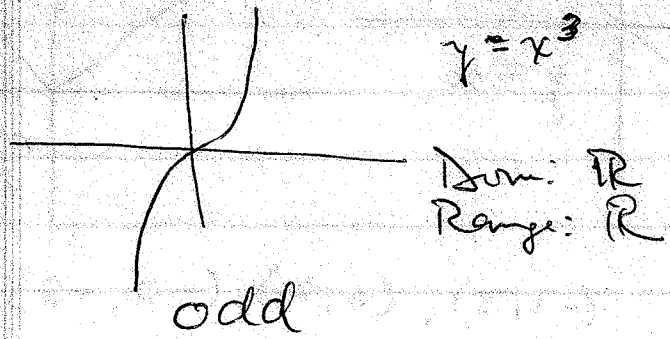 y = x³
Dom: ℝ
Range: ℝ
odd